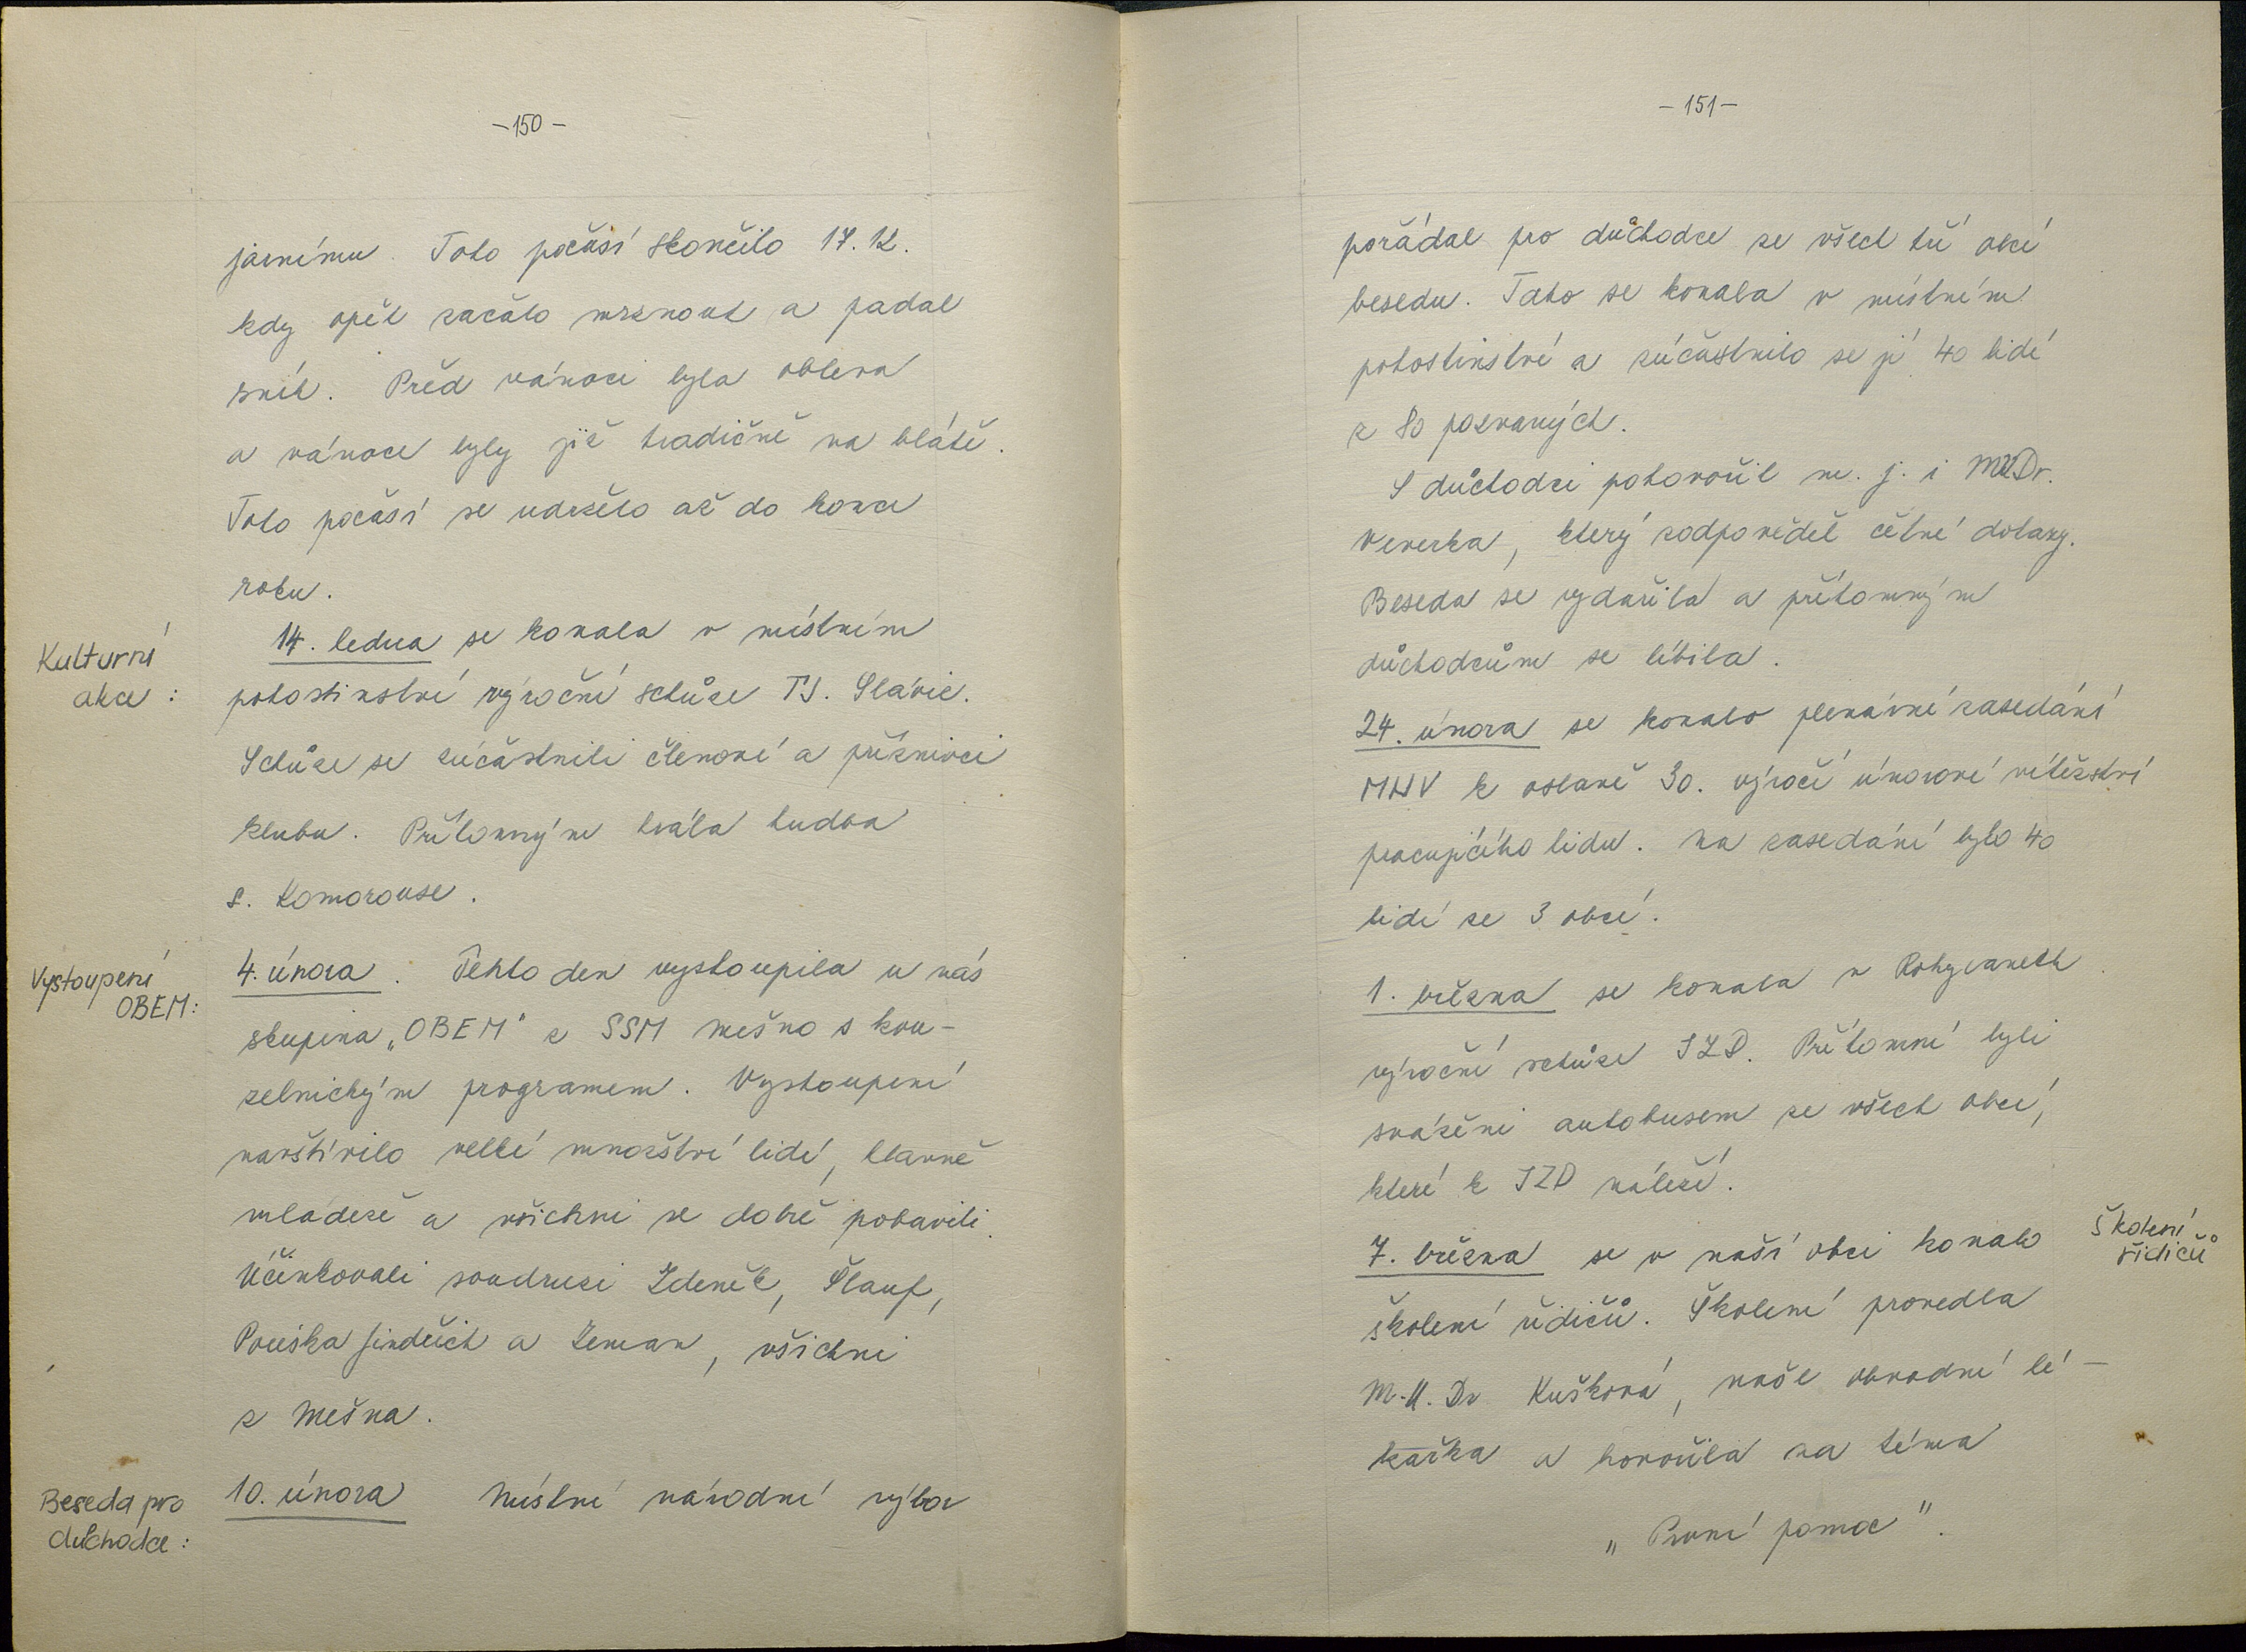 -150-
jarnímu. Toto počasí skončilo 17.12.
kdy opět začalo mrznout a padal
sníh. Před vánoci byla obleva
a vánoce byly již tradičně na blátě.
Toto počasí se udrželo až do konce
roku.
Kulturní
akce:
14. ledna se konala v místním
pohostinství výroční schůze TJ. Slávie.
Schůze se zúčastnili členové a příznivci
klubu. Přítomným hrála hudba
s. Komorouse.
Vystoupení
OBEM:
4. února. Tehto den vystoupila u nás
skupina „OBEM" z SSM Mešno s kou-
zelnickým programem. Vystoupení
navštívilo velké množství lidí, hlavně
mládeže a všichni se dobře pobavili.
Účinkovali soudruzi Zdeněk, Šlauf,
Pouska Jindřich a Zeman, všichni
z Mešna.
Beseda pro
důchodce:
10. února Místní národní výbor
-151-
pořádal pro důchodce ze všech tří obcí
besedu. Tato se konala v místním
pohostinství a zúčastnilo se jí 40 lidí
z 80 pozvaných.
S důchodci pohovořil m. j. i MUDr.
Veverka, který zodpověděl četné dotazy.
Beseda se vydařila a přítomným
důchodcům se líbila.
24. února se konalo plenární zasedání
MNV k oslavě 30. výročí únorové vítězství
pracujícího lidu. Na zasedání bylo 40
lidí ze 3 obcí.
1. března se konala v Rokycanech
výroční schůze JZD. Přítomní byli
sváženi autobusem ze všech obcí,
které k JZD náleží.
Školení
řidičů
7. března se v naší obci konalo
školení řidičů. Školení provedla
M.U.Dr Kušková, naše obvodní lé-
kařka a hovořila na téma
„První pomoc".